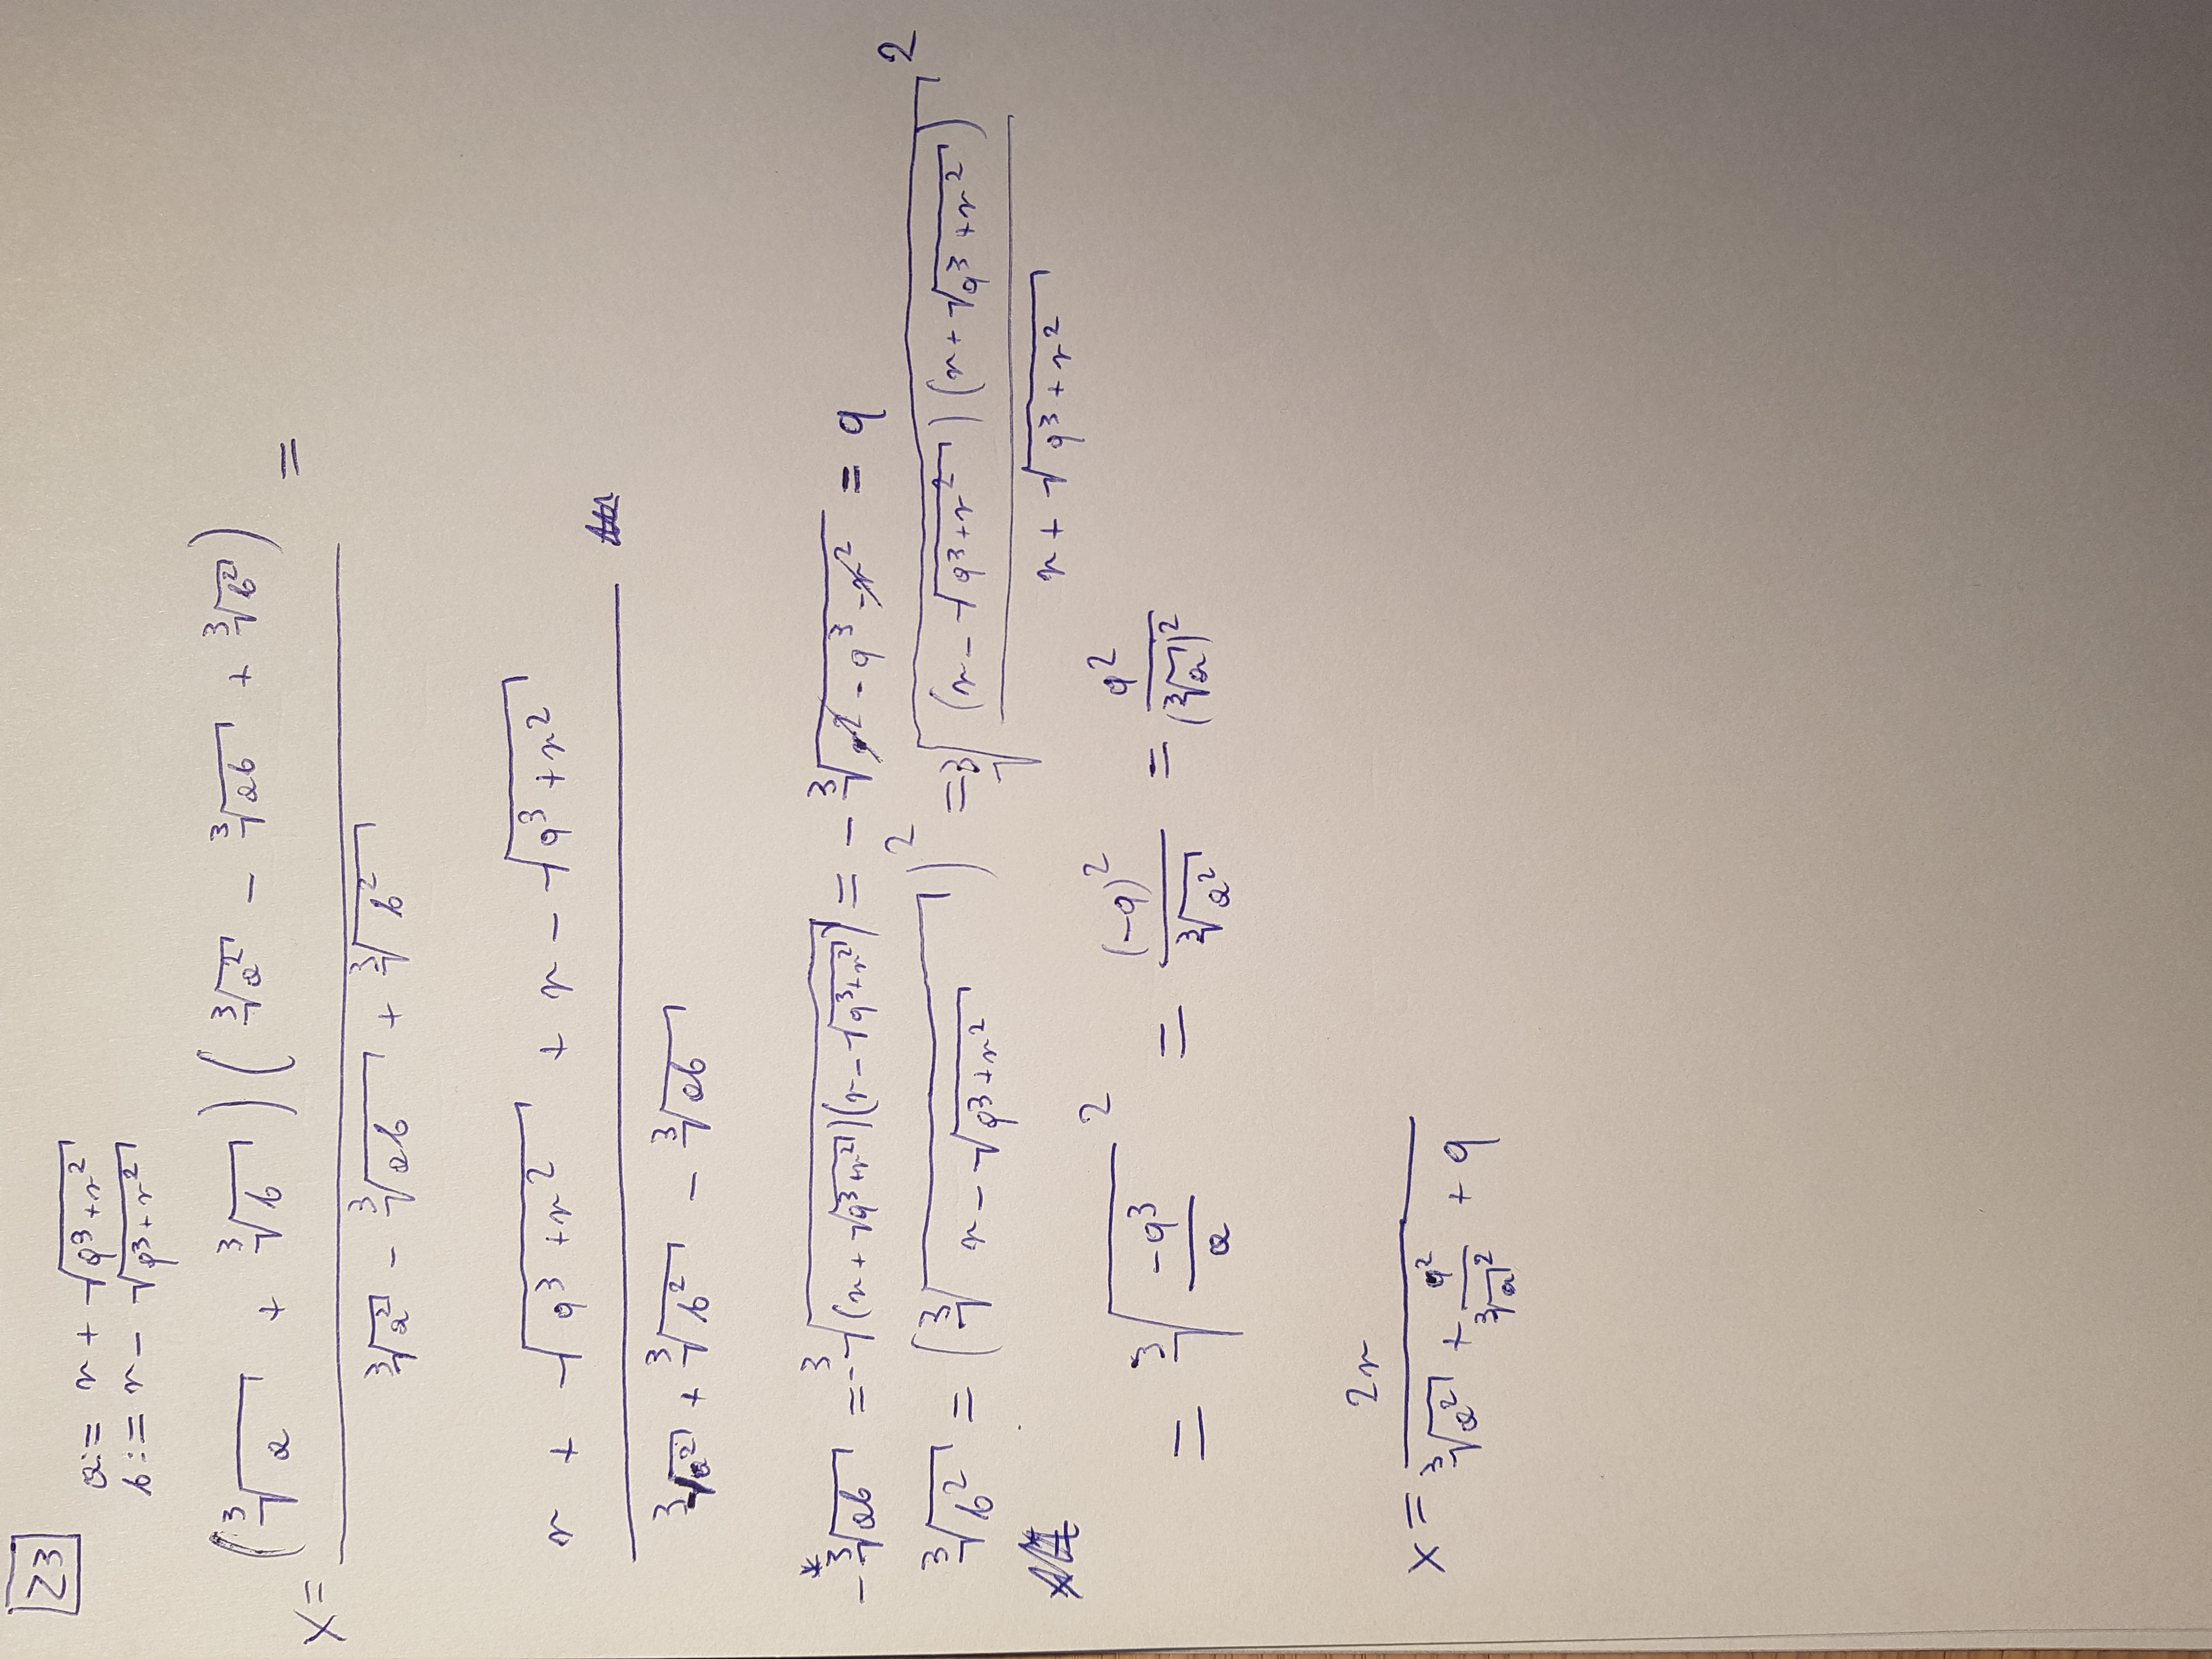 Z3
a := r + √(q³+r²)
b := r - √(q³+r²)
x = (∛a + ∛b)(∛a² - ∛ab + ∛b²) / (∛a² - ∛ab + ∛b²) =
(r + √(q³+r²) + r - √(q³+r²)) / (∛a² + ∛b² - ∛ab)
* -∛ab = -∛((r+√(q³+r²))(r-√(q³+r²))) = -∛(r² - q³ - r²) = q
∛b² = (∛(r-√(q³+r²)))² = ∛((r-√(q³+r²))(r+√(q³+r²)) / (r+√(q³+r²)))²
= ∛(-q³/a)² = (-q)²/∛a² = q²/(∛a)²
x = 2r / (∛a² + q²/∛a² + q)